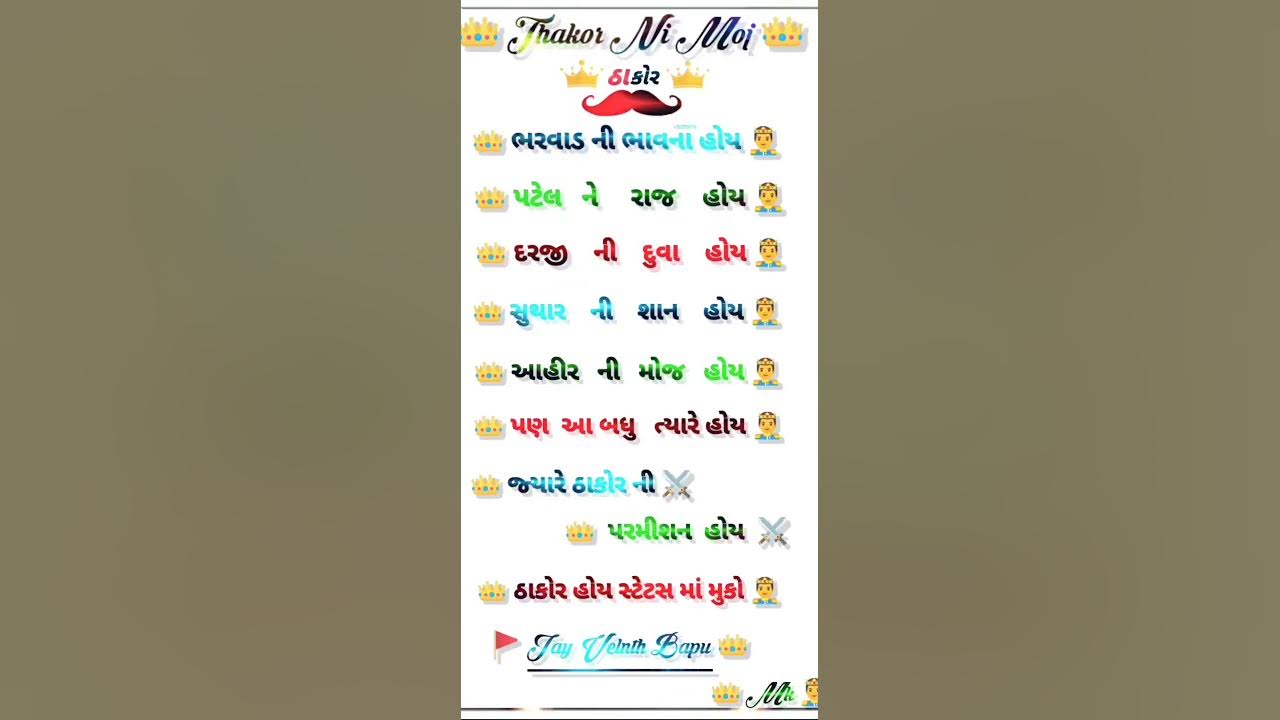 Thakor Ni Moj
ઠાકોર
ભરવાડ ની ભાવના હોય
પટેલ ને રાજ હોય
દરજી ની દુવા હોય
સુથાર ની શાન હોય
આહીર ની મોજ હોય
પણ આ બધુ ત્યારે હોય
જ્યારે ઠાકોર ની
પરમીશન હોય
ઠાકોર હોય સ્ટેટસ માં મુકો
Jay Velnth Bapu
Mk